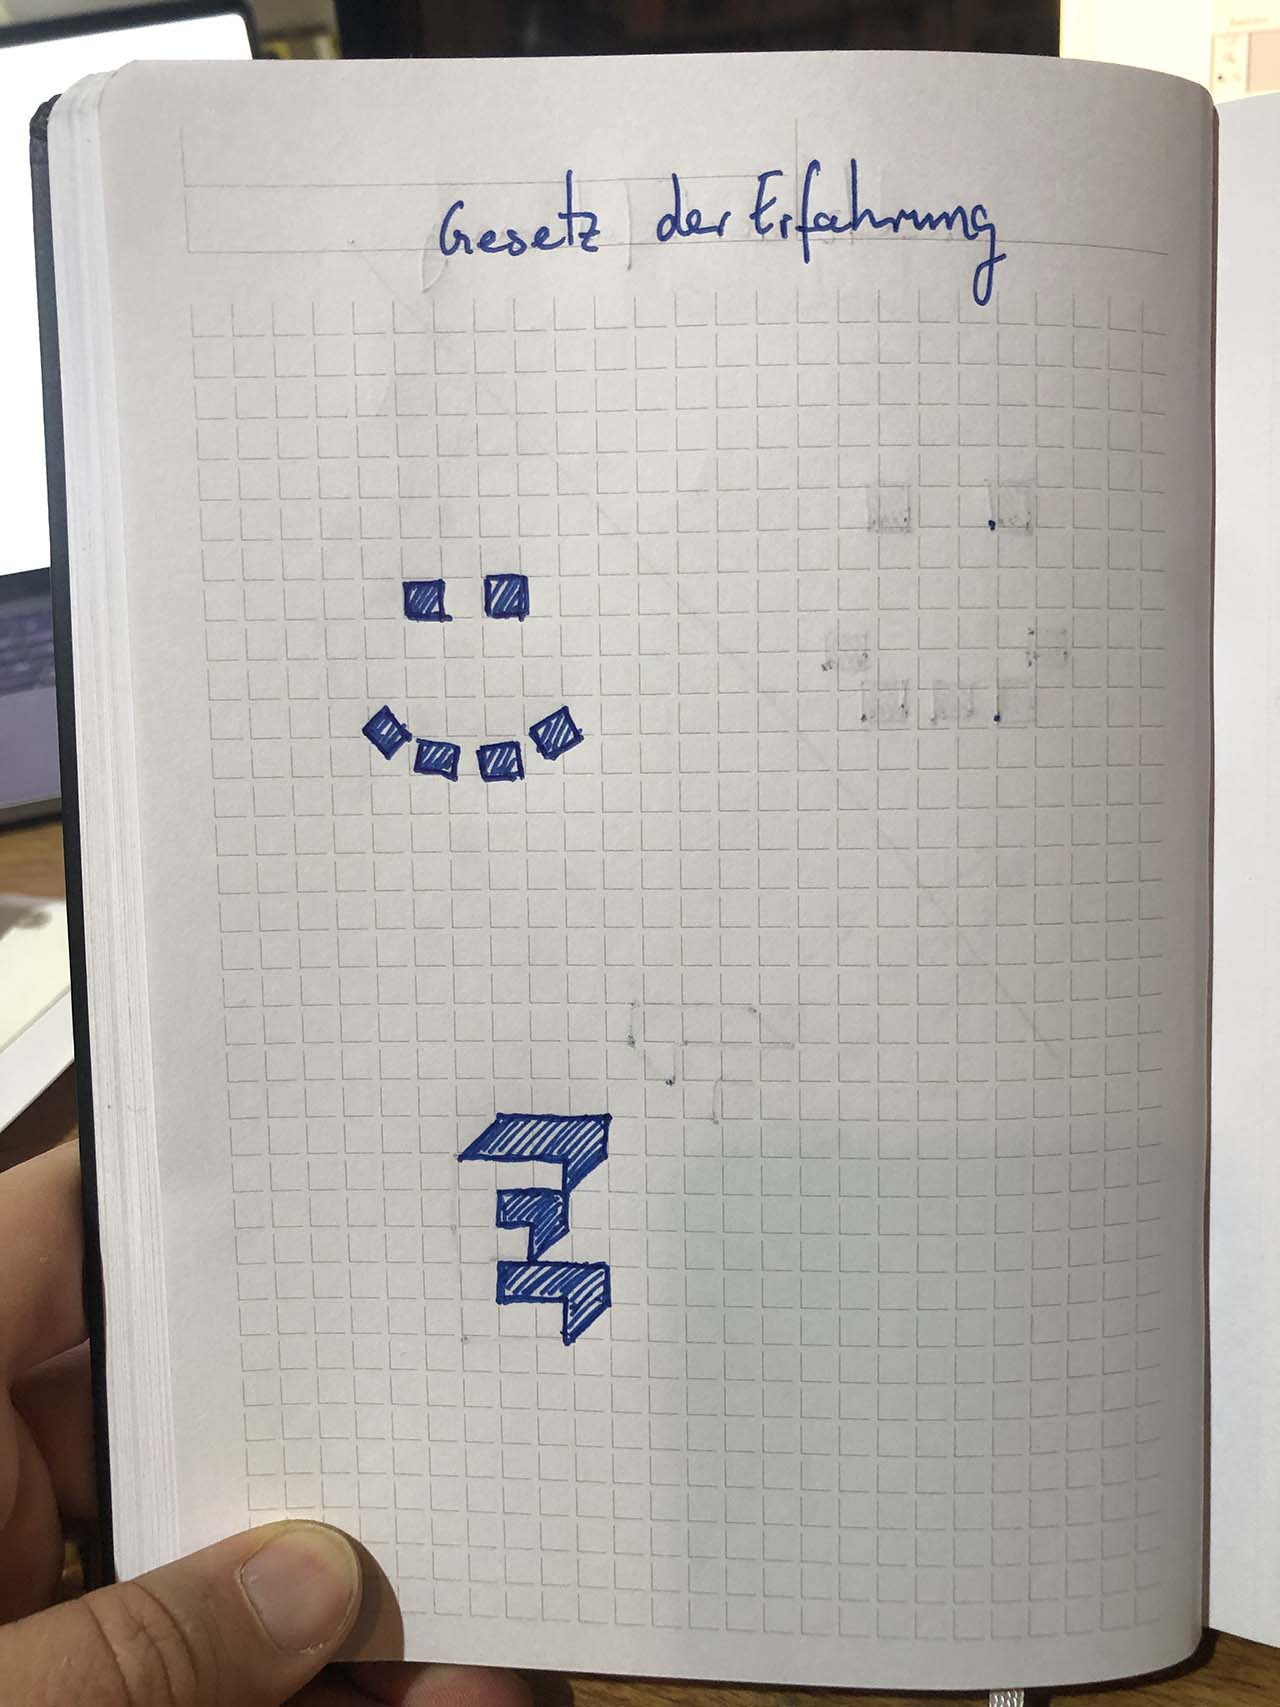 Gesetz der Erfahrung